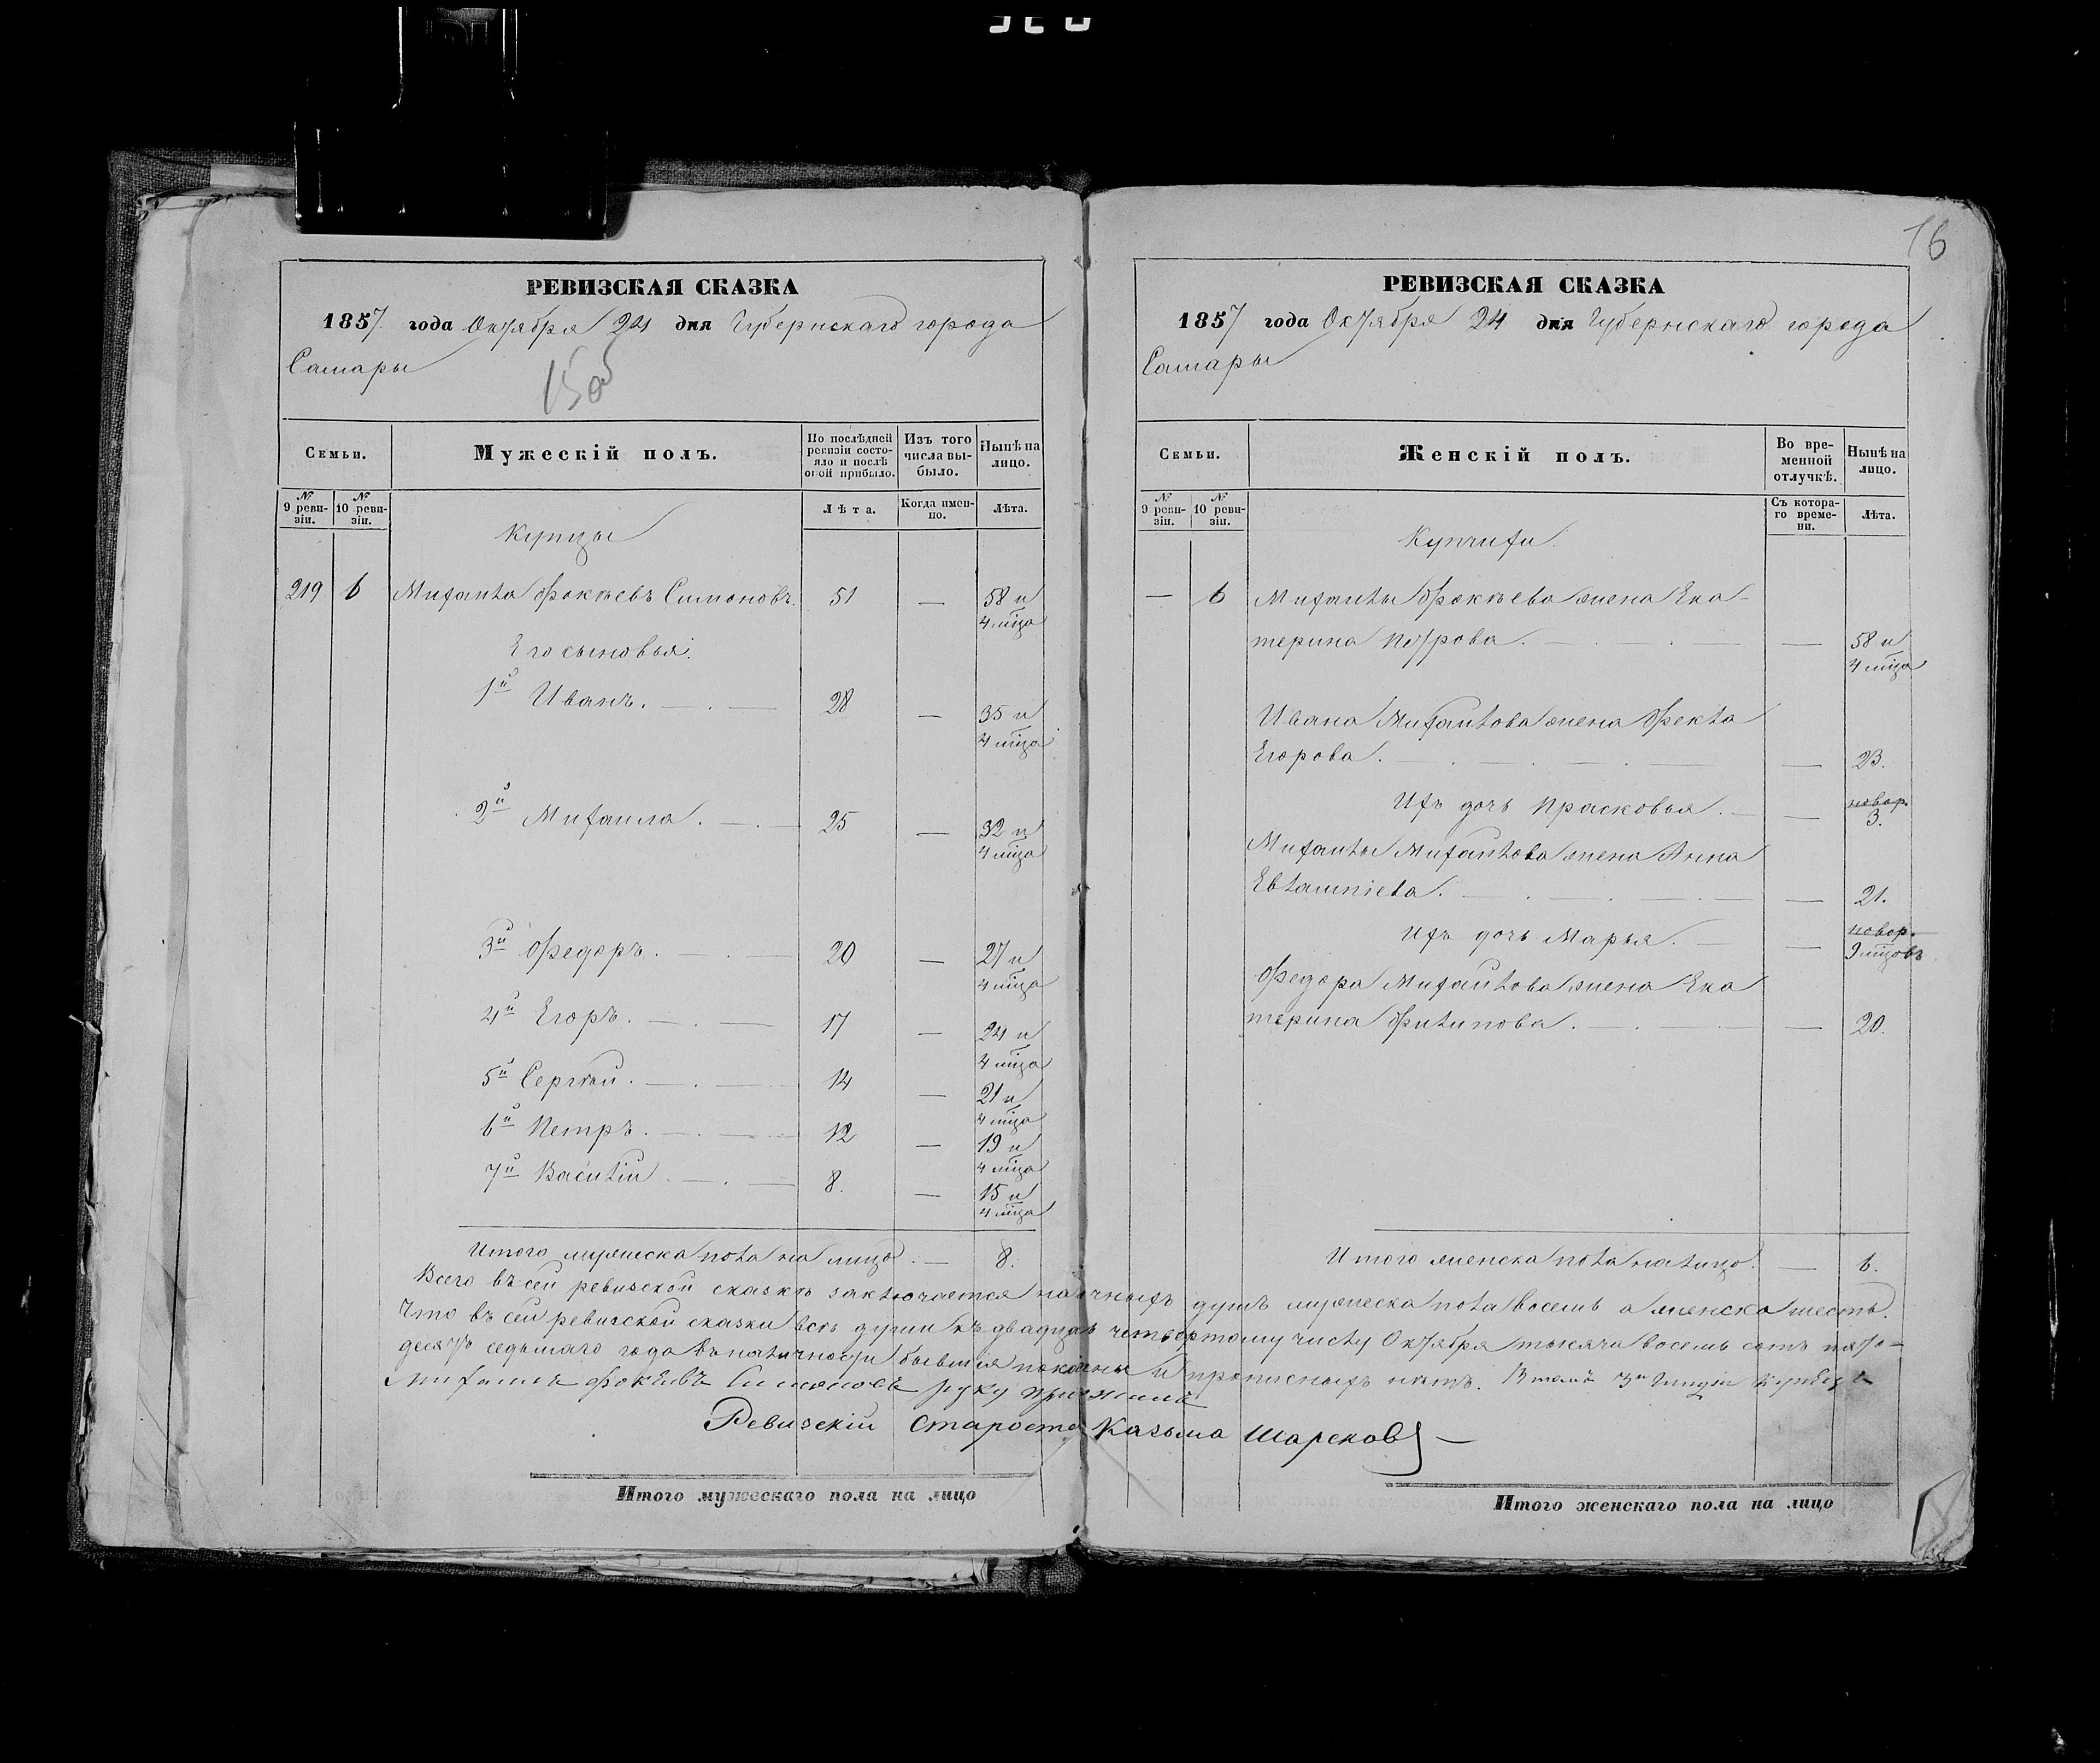 16
РЕВИЗСКАЯ СКАЗКА
1857 года Октября 24 дня Губернскаго города
Самары
15об
Семьи.
Мужескій полъ.
По послѣдней ревизіи состояло и послѣ оной прибыло.
Изъ того числа выбыло.
Нынѣ на лицо.
№ 9 ревизіи.
№ 10 ревизіи.
Лѣта.
Когда именно.
Лѣта.
Купцы
219 6 Михаила Фокѣевъ Симоновъ. 51 — 58 и 4 мца
Его сыновья:
1й Иванъ. 28 — 35 и 4 мца
2й Михаила. 25 — 32 и 4 мца
3й Федоръ. 20 — 27 и 4 мца
4й Егоръ. 17 — 24 и 4 мца
5й Сергѣй. 14 — 21 и 4 мца
6й Петръ. 12 — 19 и 4 мца
7й Василій. 8. — 15 и 4 мца
Итого мужеска пола на лицо. — 8.
РЕВИЗСКАЯ СКАЗКА
1857 года Октября 24 дня Губернскаго города
Самары
Семьи.
Женскій полъ.
Во временной отлучкѣ.
Нынѣ на лицо.
№ 9 ревизіи.
№ 10 ревизіи.
Съ котораго времени.
Лѣта.
Купчихи.
— 6 Михаилы Фокѣева жена Ека-
терина Петрова. — 58 и 4 мца
Ивана Михайлова жена Фекла
Егорова. — 23.
Ихъ дочь Прасковья. — новор. 3.
Михаилы Михайлова жена Анна
Евлампіева. — 21.
Ихъ дочь Марья. — новор. 9 мцовъ
Федора Михайлова жена Ека
терина Филипова. — 20.
Итого женска пола на лицо. — 6.
Всего въ сей ревизской сказкѣ заключается наличныхъ душъ мужеска пола восемь а женска шесть.
Что въ сей ревизской сказки всѣ души къ двадцать четвертому числу Октября тысяча восемь сотъ пять-
десятъ седьмаго года въ наличности бывшія показаны и прописныхъ нѣтъ. В томъ 3й Гильдіи Купецъ
Михаила Фокѣевъ Симоновъ руку приложилъ
Ревизскій Староста Казьма Шарсков
Итого мужескаго пола на лицо
Итого женскаго пола на лицо